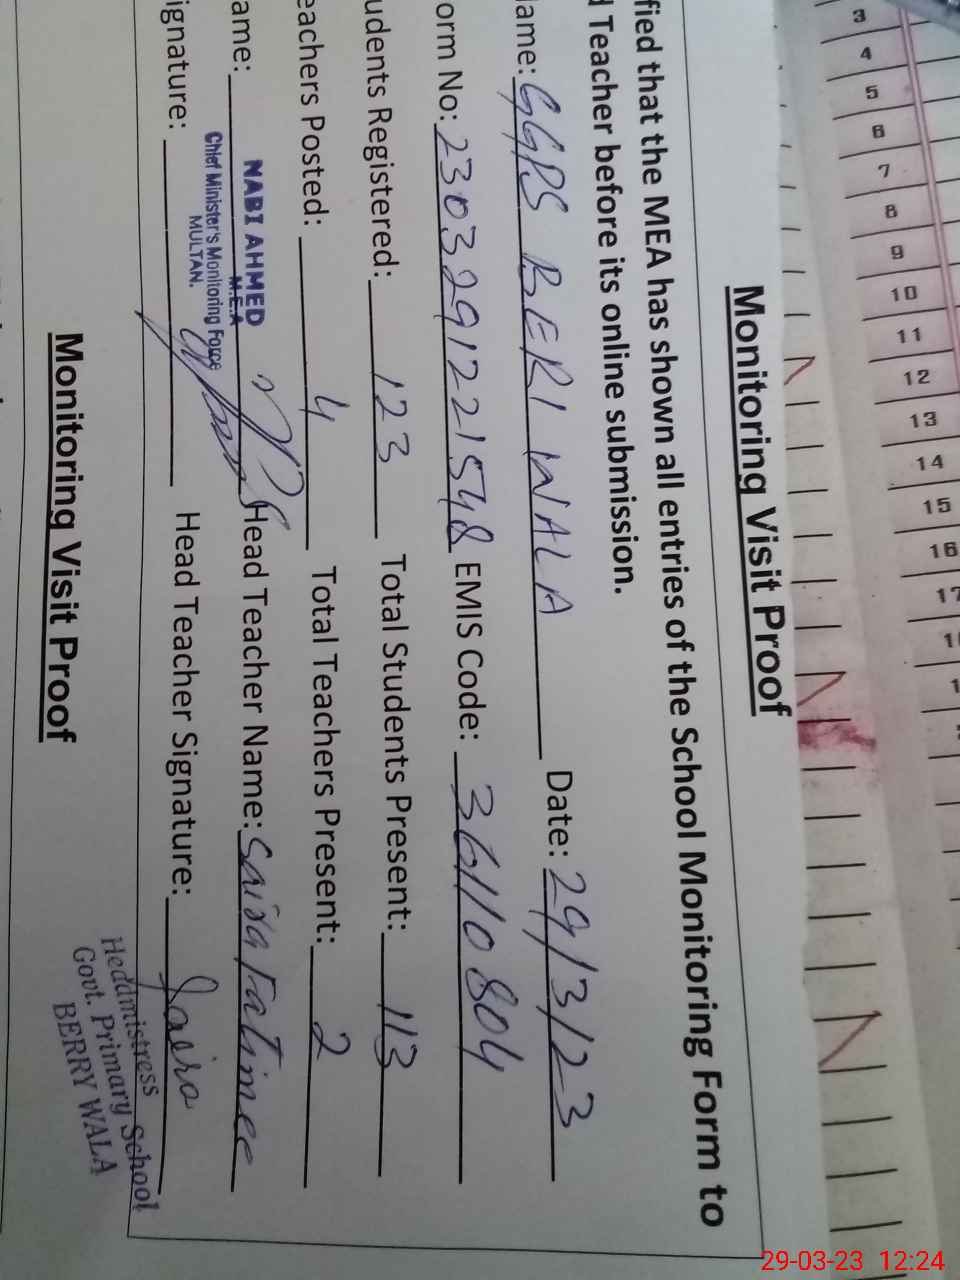 3
4
5
6
7
8
9
10
11
12
13
14
15
16
Monitoring Visit Proof
fied that the MEA has shown all entries of the School Monitoring Form to
d Teacher before its online submission.
ame: GGPS BERI WALA Date: 29/3/23
orm No: 2303291221548 EMIS Code: 36110804
udents Registered: 123 Total Students Present: 113
eachers Posted: 4 Total Teachers Present: 2
ame: NABI AHMED Head Teacher Name: Saira Fatimee
M.E.A
Chief Minister's Monitoring Force
MULTAN.
ignature: Head Teacher Signature: Saira
Heddmistress
Govt. Primary School
BERRY WALA
Monitoring Visit Proof
29-03-23 12:24